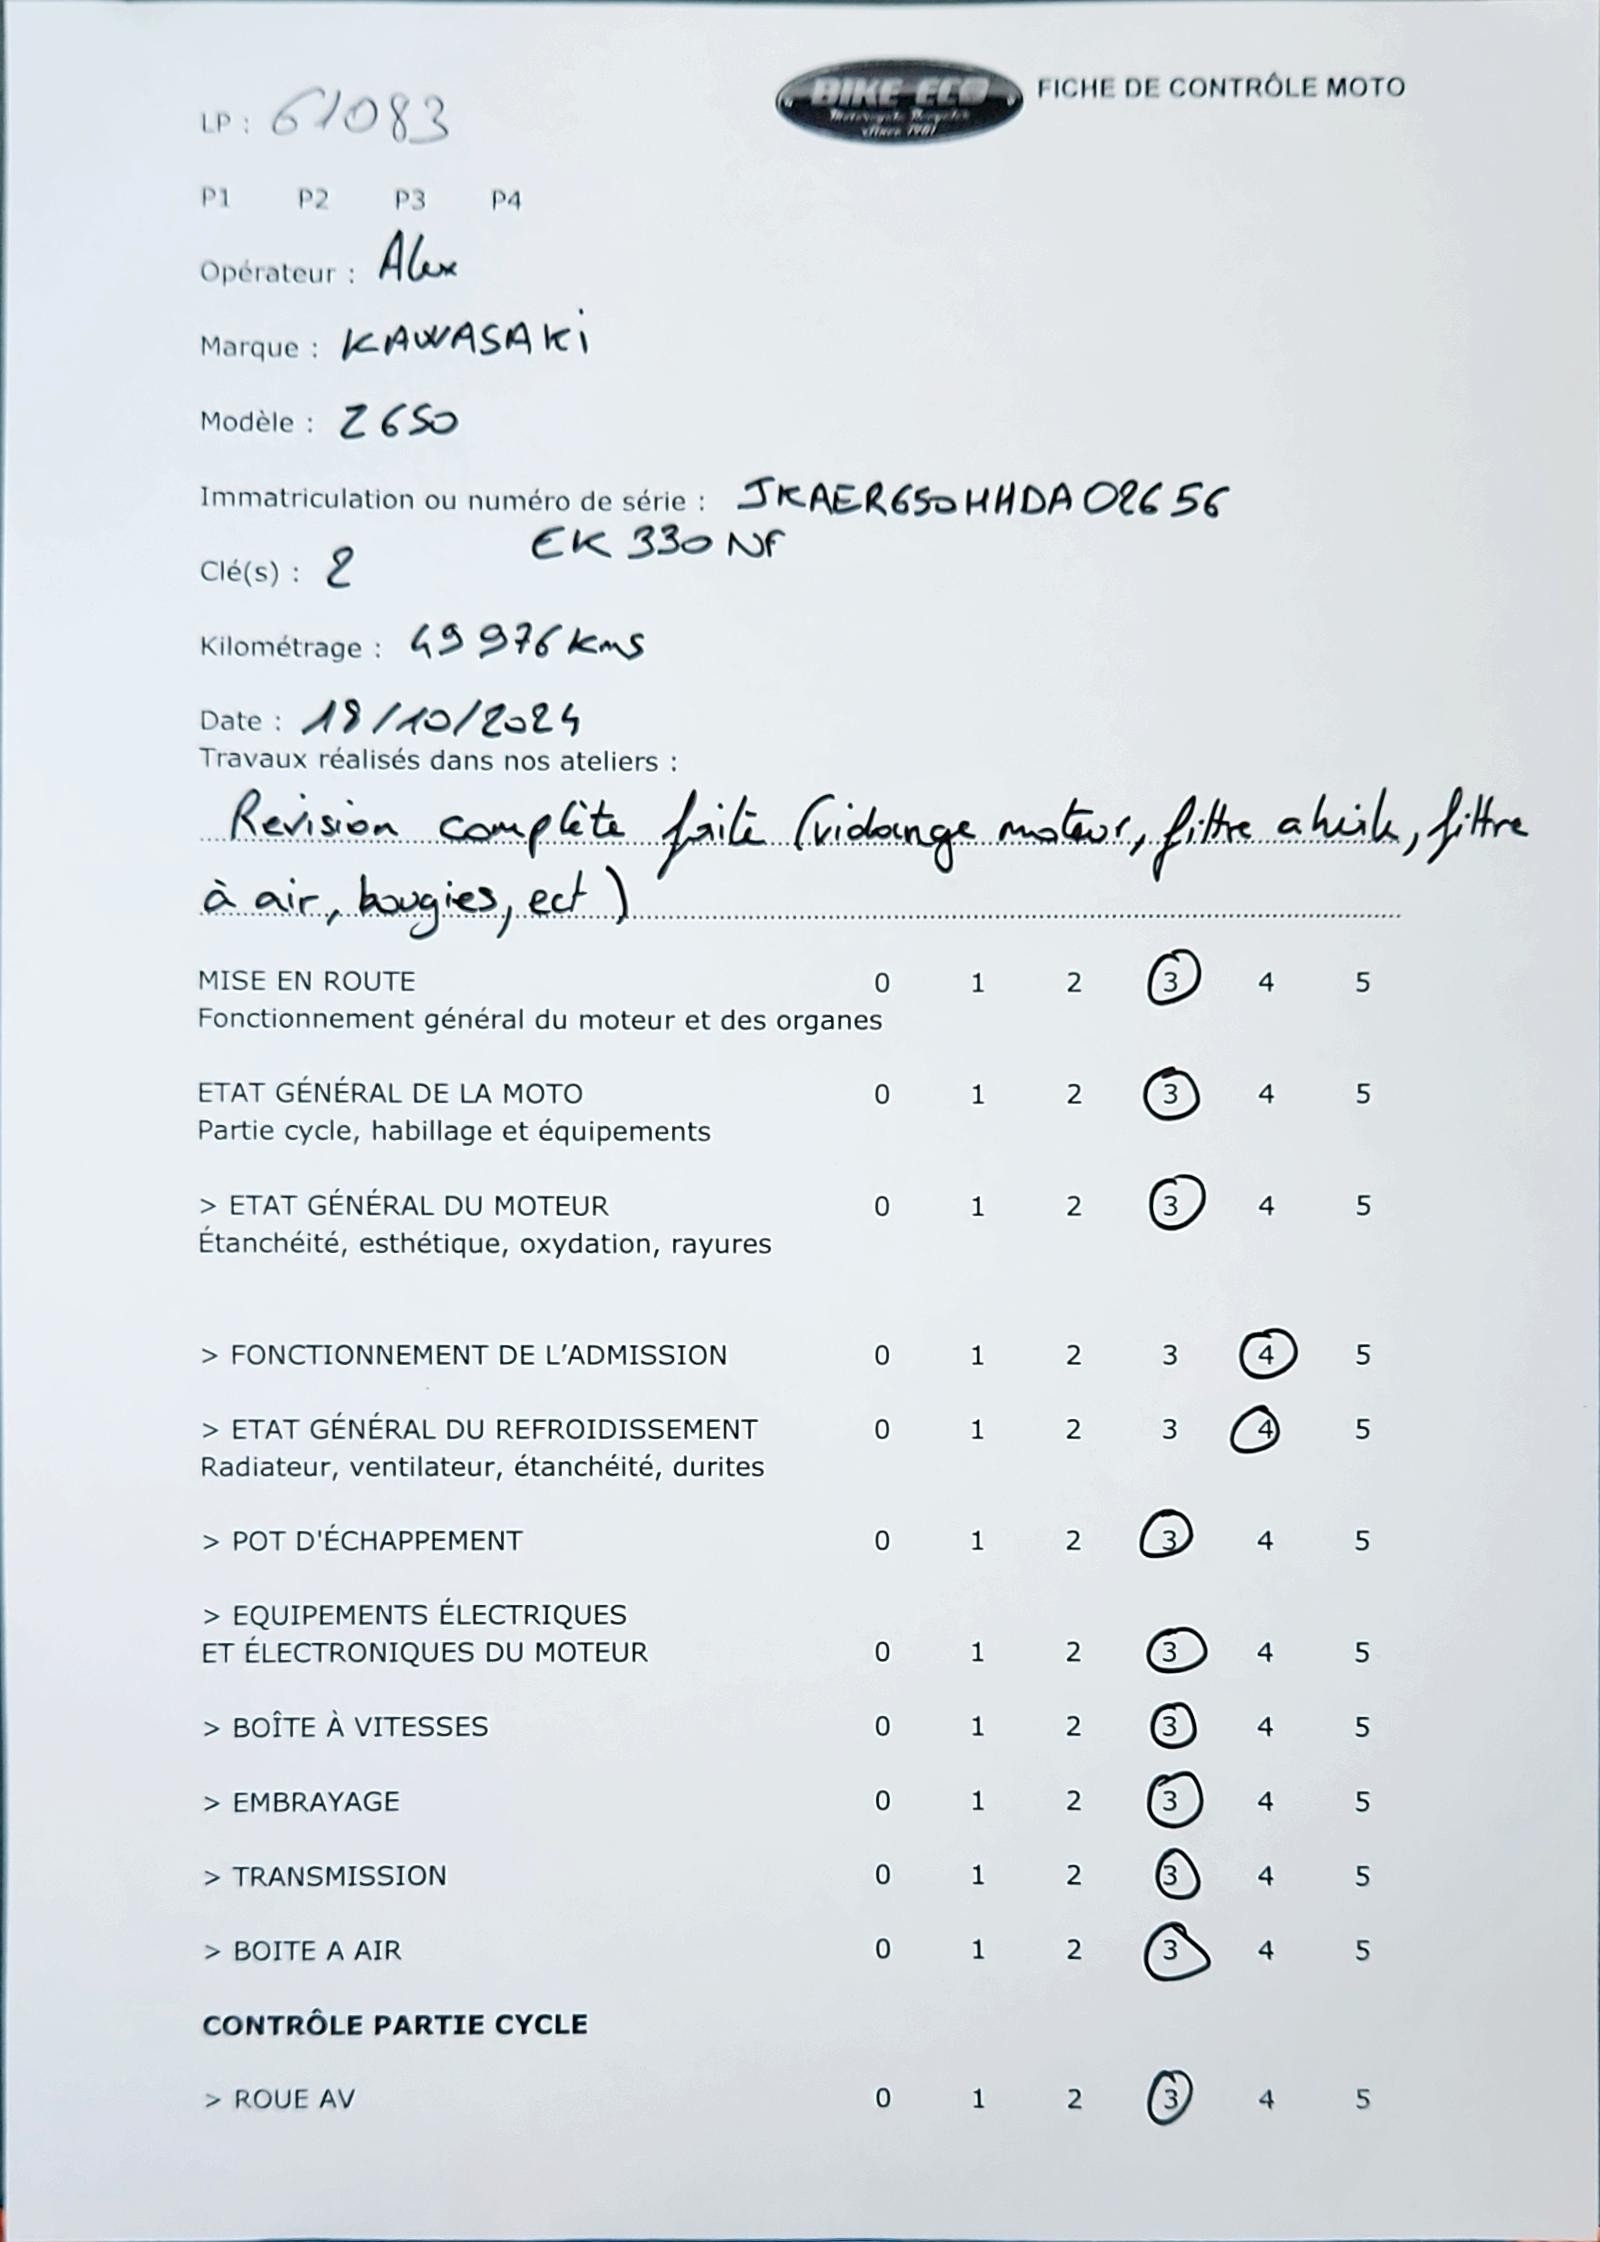 BIKE ECO
Motorcycle Recycler
Since 1981
FICHE DE CONTRÔLE MOTO
LP : 61083
P1 P2 P3 P4
Opérateur : Alex
Marque : KAWASAKi
Modèle : Z650
Immatriculation ou numéro de série : JKAER650HHDA02656
EK 330 NF
Clé(s) : 2
Kilométrage : 49 976 kms
Date : 18/10/2024
Travaux réalisés dans nos ateliers :
Revision complète faite (vidange moteur, filtre a huile, filtre
à air, bougies, ect)
MISE EN ROUTE 0 1 2 3 4 5
Fonctionnement général du moteur et des organes
ETAT GÉNÉRAL DE LA MOTO 0 1 2 3 4 5
Partie cycle, habillage et équipements
> ETAT GÉNÉRAL DU MOTEUR 0 1 2 3 4 5
Étanchéité, esthétique, oxydation, rayures
> FONCTIONNEMENT DE L'ADMISSION 0 1 2 3 4 5
> ETAT GÉNÉRAL DU REFROIDISSEMENT 0 1 2 3 4 5
Radiateur, ventilateur, étanchéité, durites
> POT D'ÉCHAPPEMENT 0 1 2 3 4 5
> EQUIPEMENTS ÉLECTRIQUES
ET ÉLECTRONIQUES DU MOTEUR 0 1 2 3 4 5
> BOÎTE À VITESSES 0 1 2 3 4 5
> EMBRAYAGE 0 1 2 3 4 5
> TRANSMISSION 0 1 2 3 4 5
> BOITE A AIR 0 1 2 3 4 5
CONTRÔLE PARTIE CYCLE
> ROUE AV 0 1 2 3 4 5